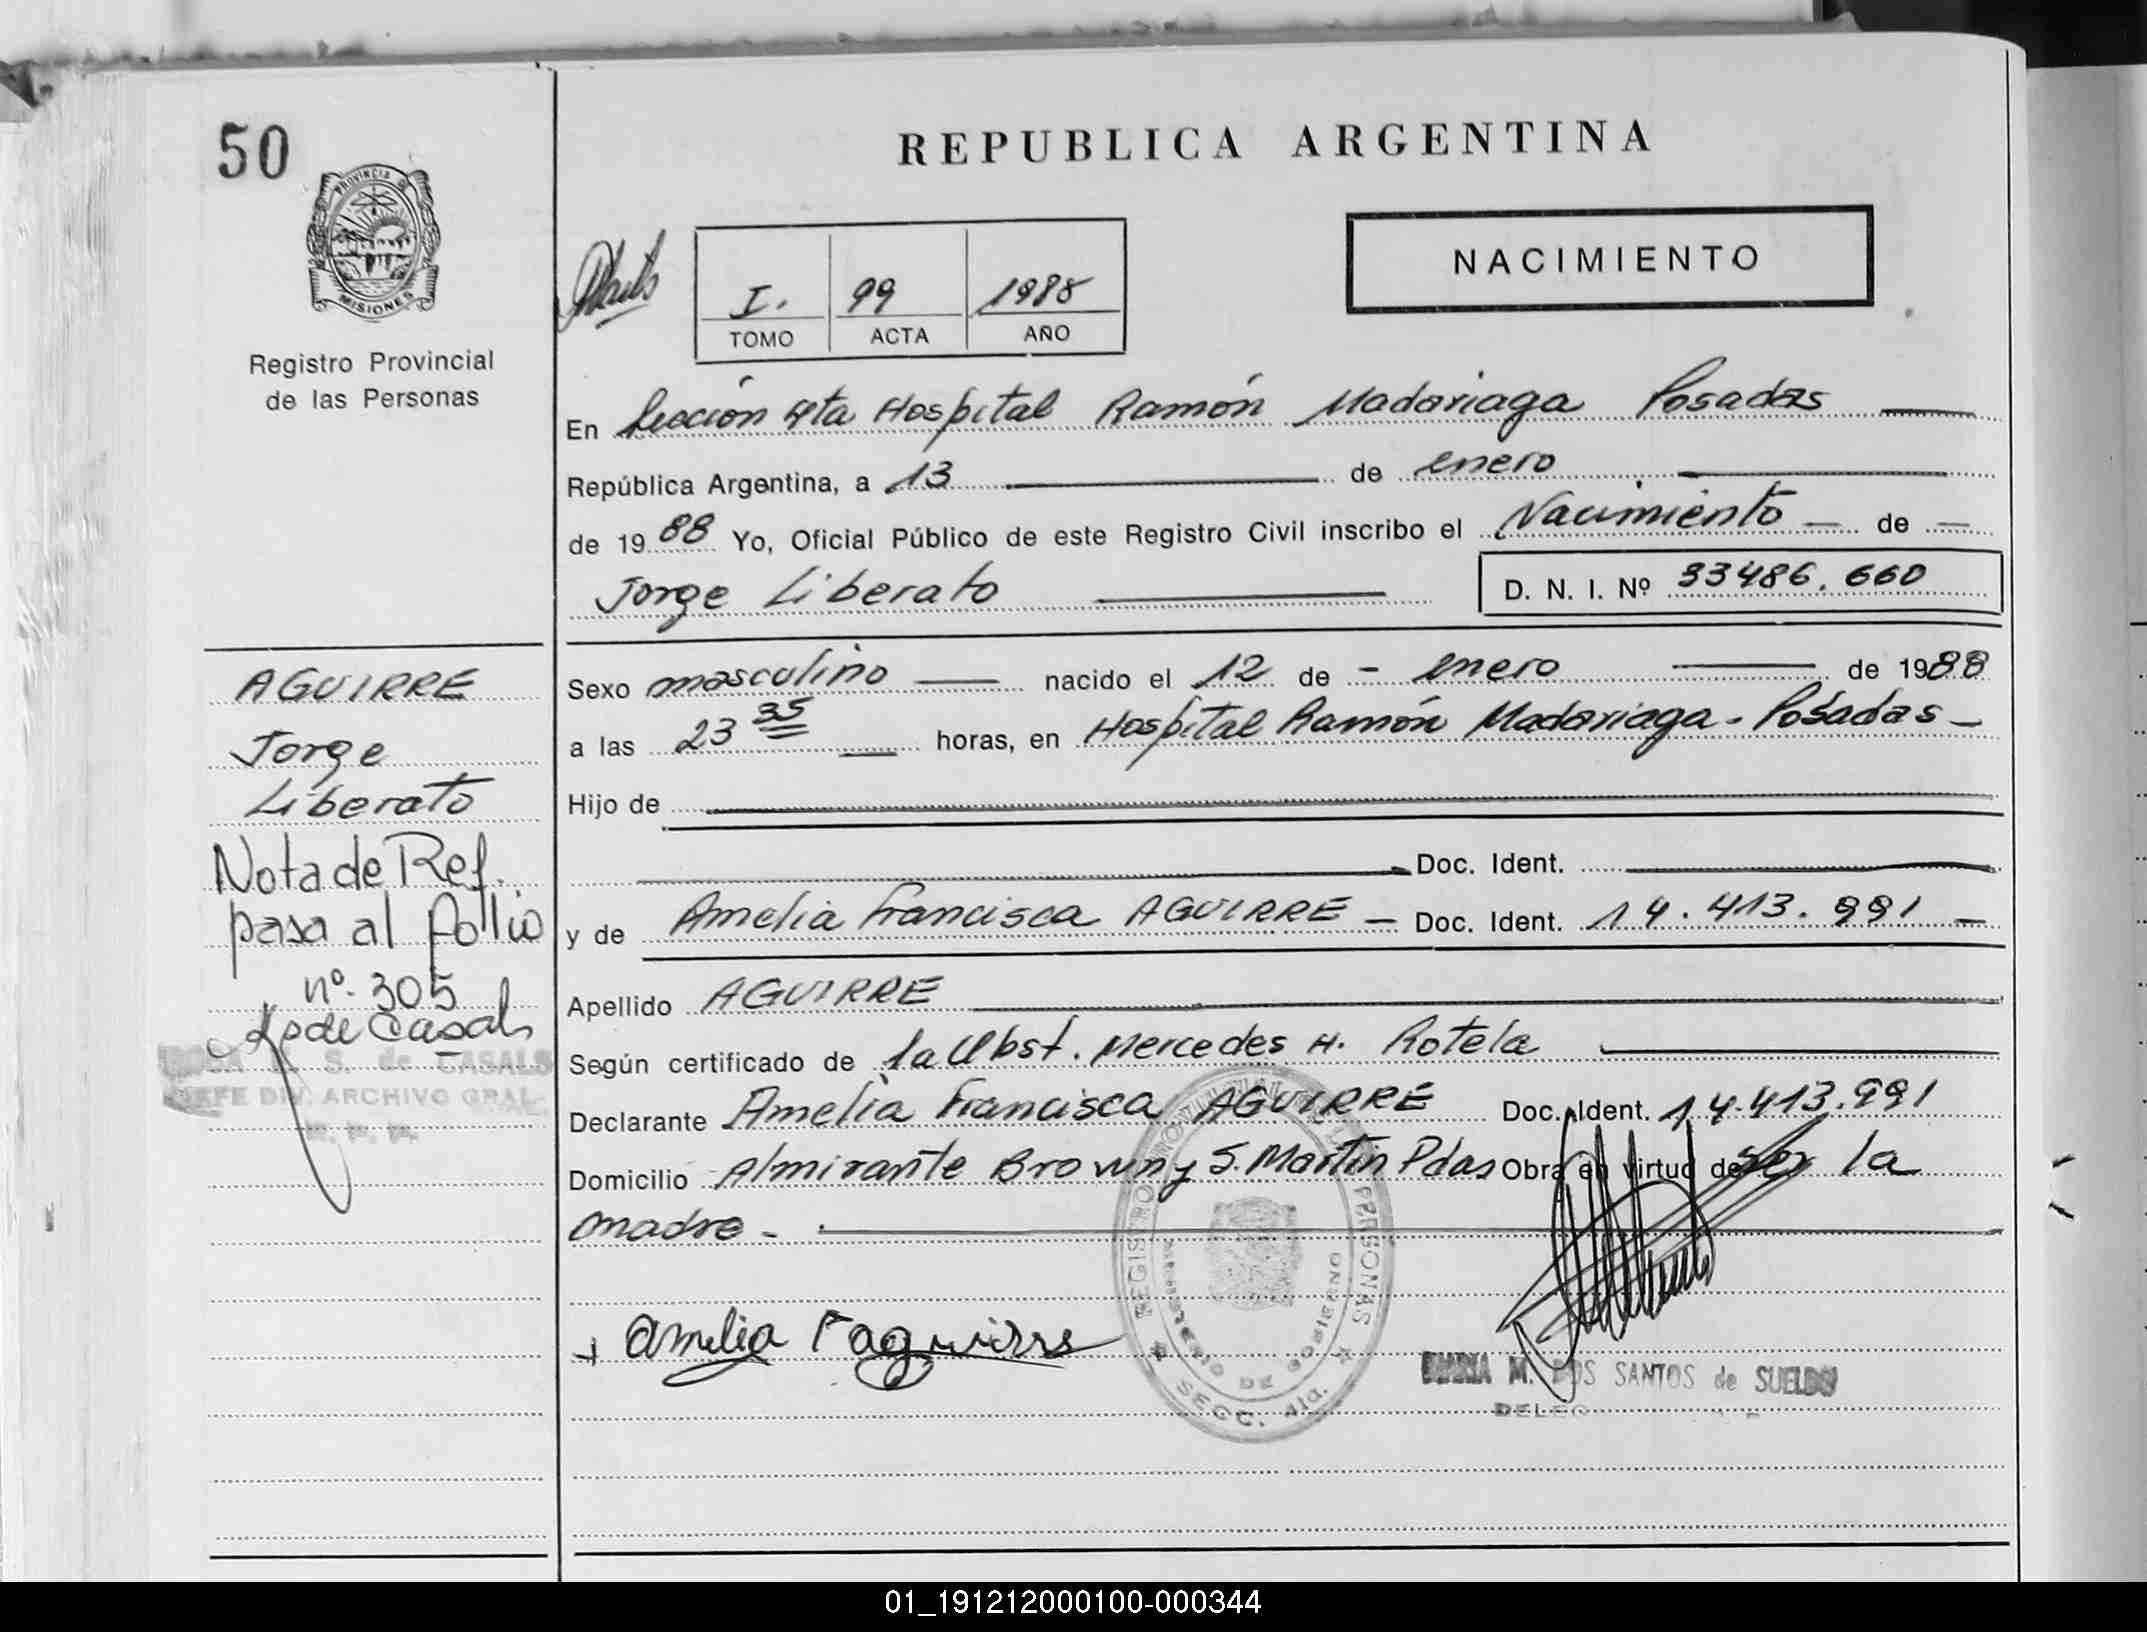 50
REPUBLICA ARGENTINA
PROVINCIA DE
MISIONES
Registro Provincial
de las Personas
NACIMIENTO
I. 99 1988
TOMO ACTA AÑO
En Sección 4ta Hospital Ramón Madariaga Posadas
República Argentina, a 13 de enero
de 1988 Yo, Oficial Público de este Registro Civil inscribo el Nacimiento de
Jorge Liberato D. N. I. Nº 33486.660
AGUIRRE
Jorge
Liberato
Nota de Ref.
pasa al follio
nº. 305
S. de CASALS
JEFE DIV. ARCHIVO GRAL.
Sexo masculino nacido el 12 de - enero de 1988
a las 23 35 horas, en Hospital Ramón Madariaga - Posadas -
Hijo de
Doc. Ident.
y de Amelia Francisca AGUIRRE - Doc. Ident. 14.413.991 -
Apellido AGUIRRE
Según certificado de la Obst. Mercedes H. Rotela
Declarante Amelia Francisca AGUIRRE Doc. Ident. 14.413.991
Domicilio Almirante Brown y S. Martin Pdas Obra en virtud de ser la
madre -
REGISTRO PROVINCIAL DE LAS PERSONAS
MINISTERIO DE GOBIERNO
SECC. 4ta.
Amelia F aguirre
MARIA M. DOS SANTOS de SUELDO
01_191212000100-000344